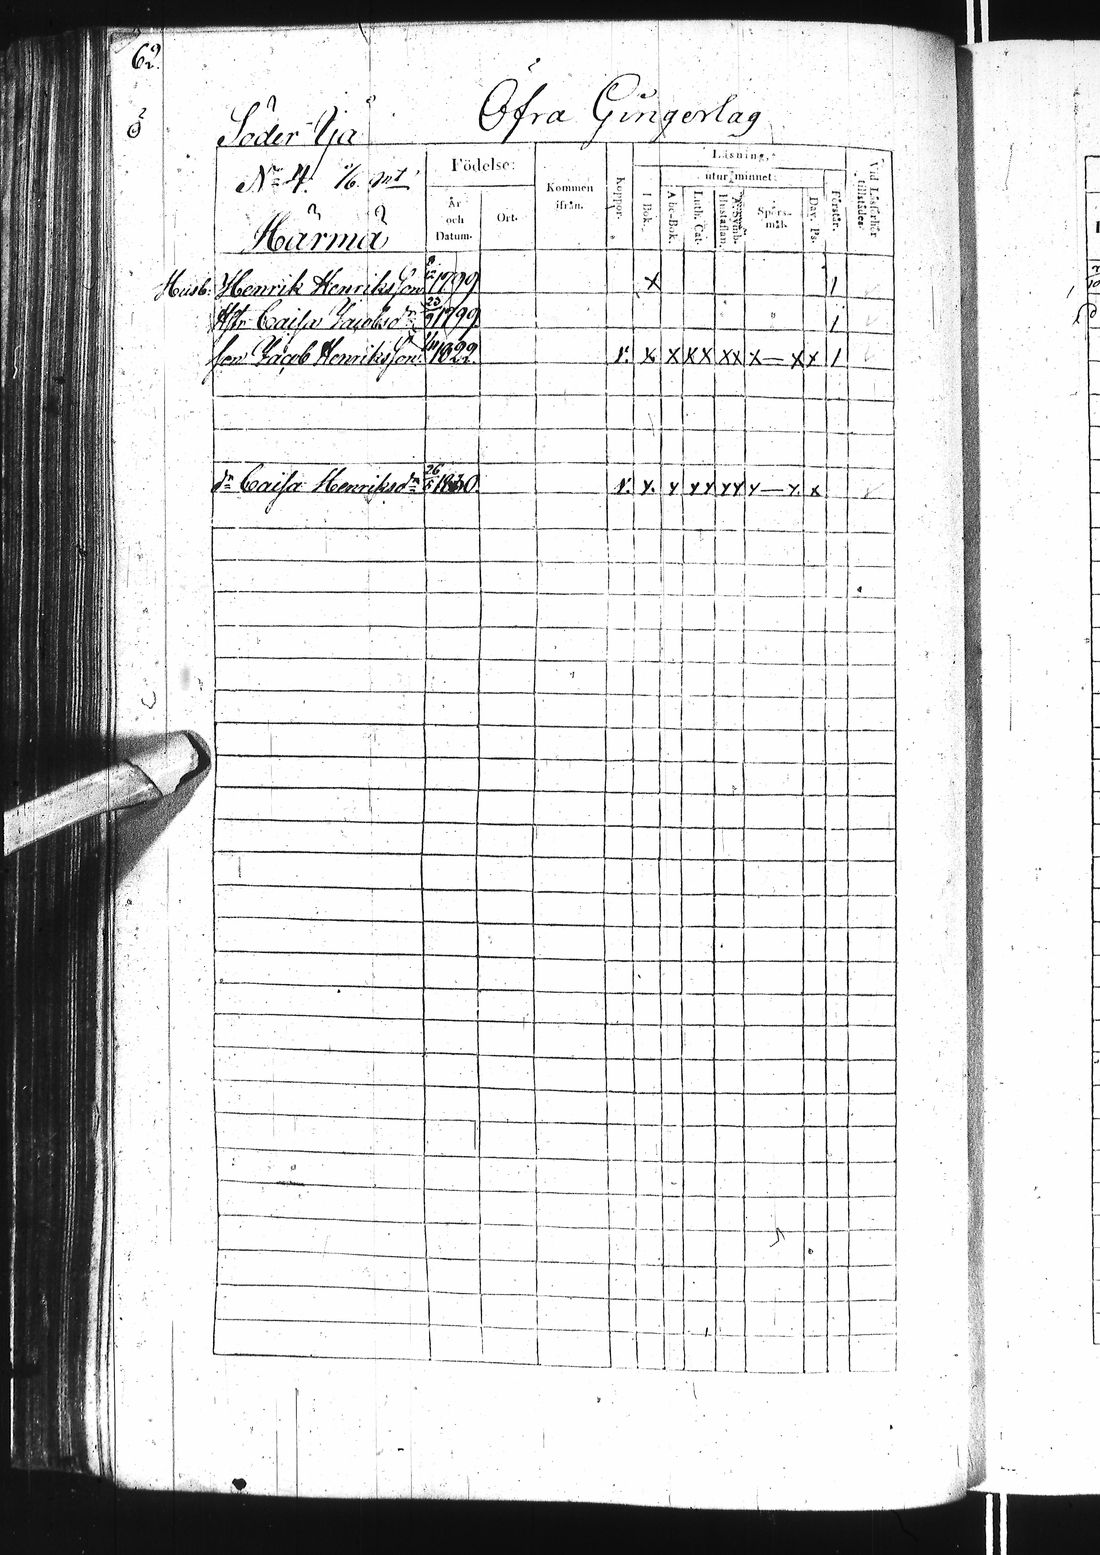 62.
Öfra Gungerlag
Söder Yjä
No 4. 1/6 mt
Härmä
Födelse:
År och Datum.
Ort.
Kommen ifrån.
Koppor.
Läsning,
utur minnet:
I Bok.
Abc-Bok.
Luth. Cat.
Hustaflan.
Spörs-mål.
Dav. Ps.
Förstår.
Vid Läsförhör tillstädes:
Husb. Henrik Henriksson 1799 x 1
Hstr Caisa Jacobsdr 23/9 1799 1
son Jacob Henriksson 1822 v. x x x x x x x — x x 1
dr Caisa Henriksdr 26/5 18 0. v. x x x x x x x — x x